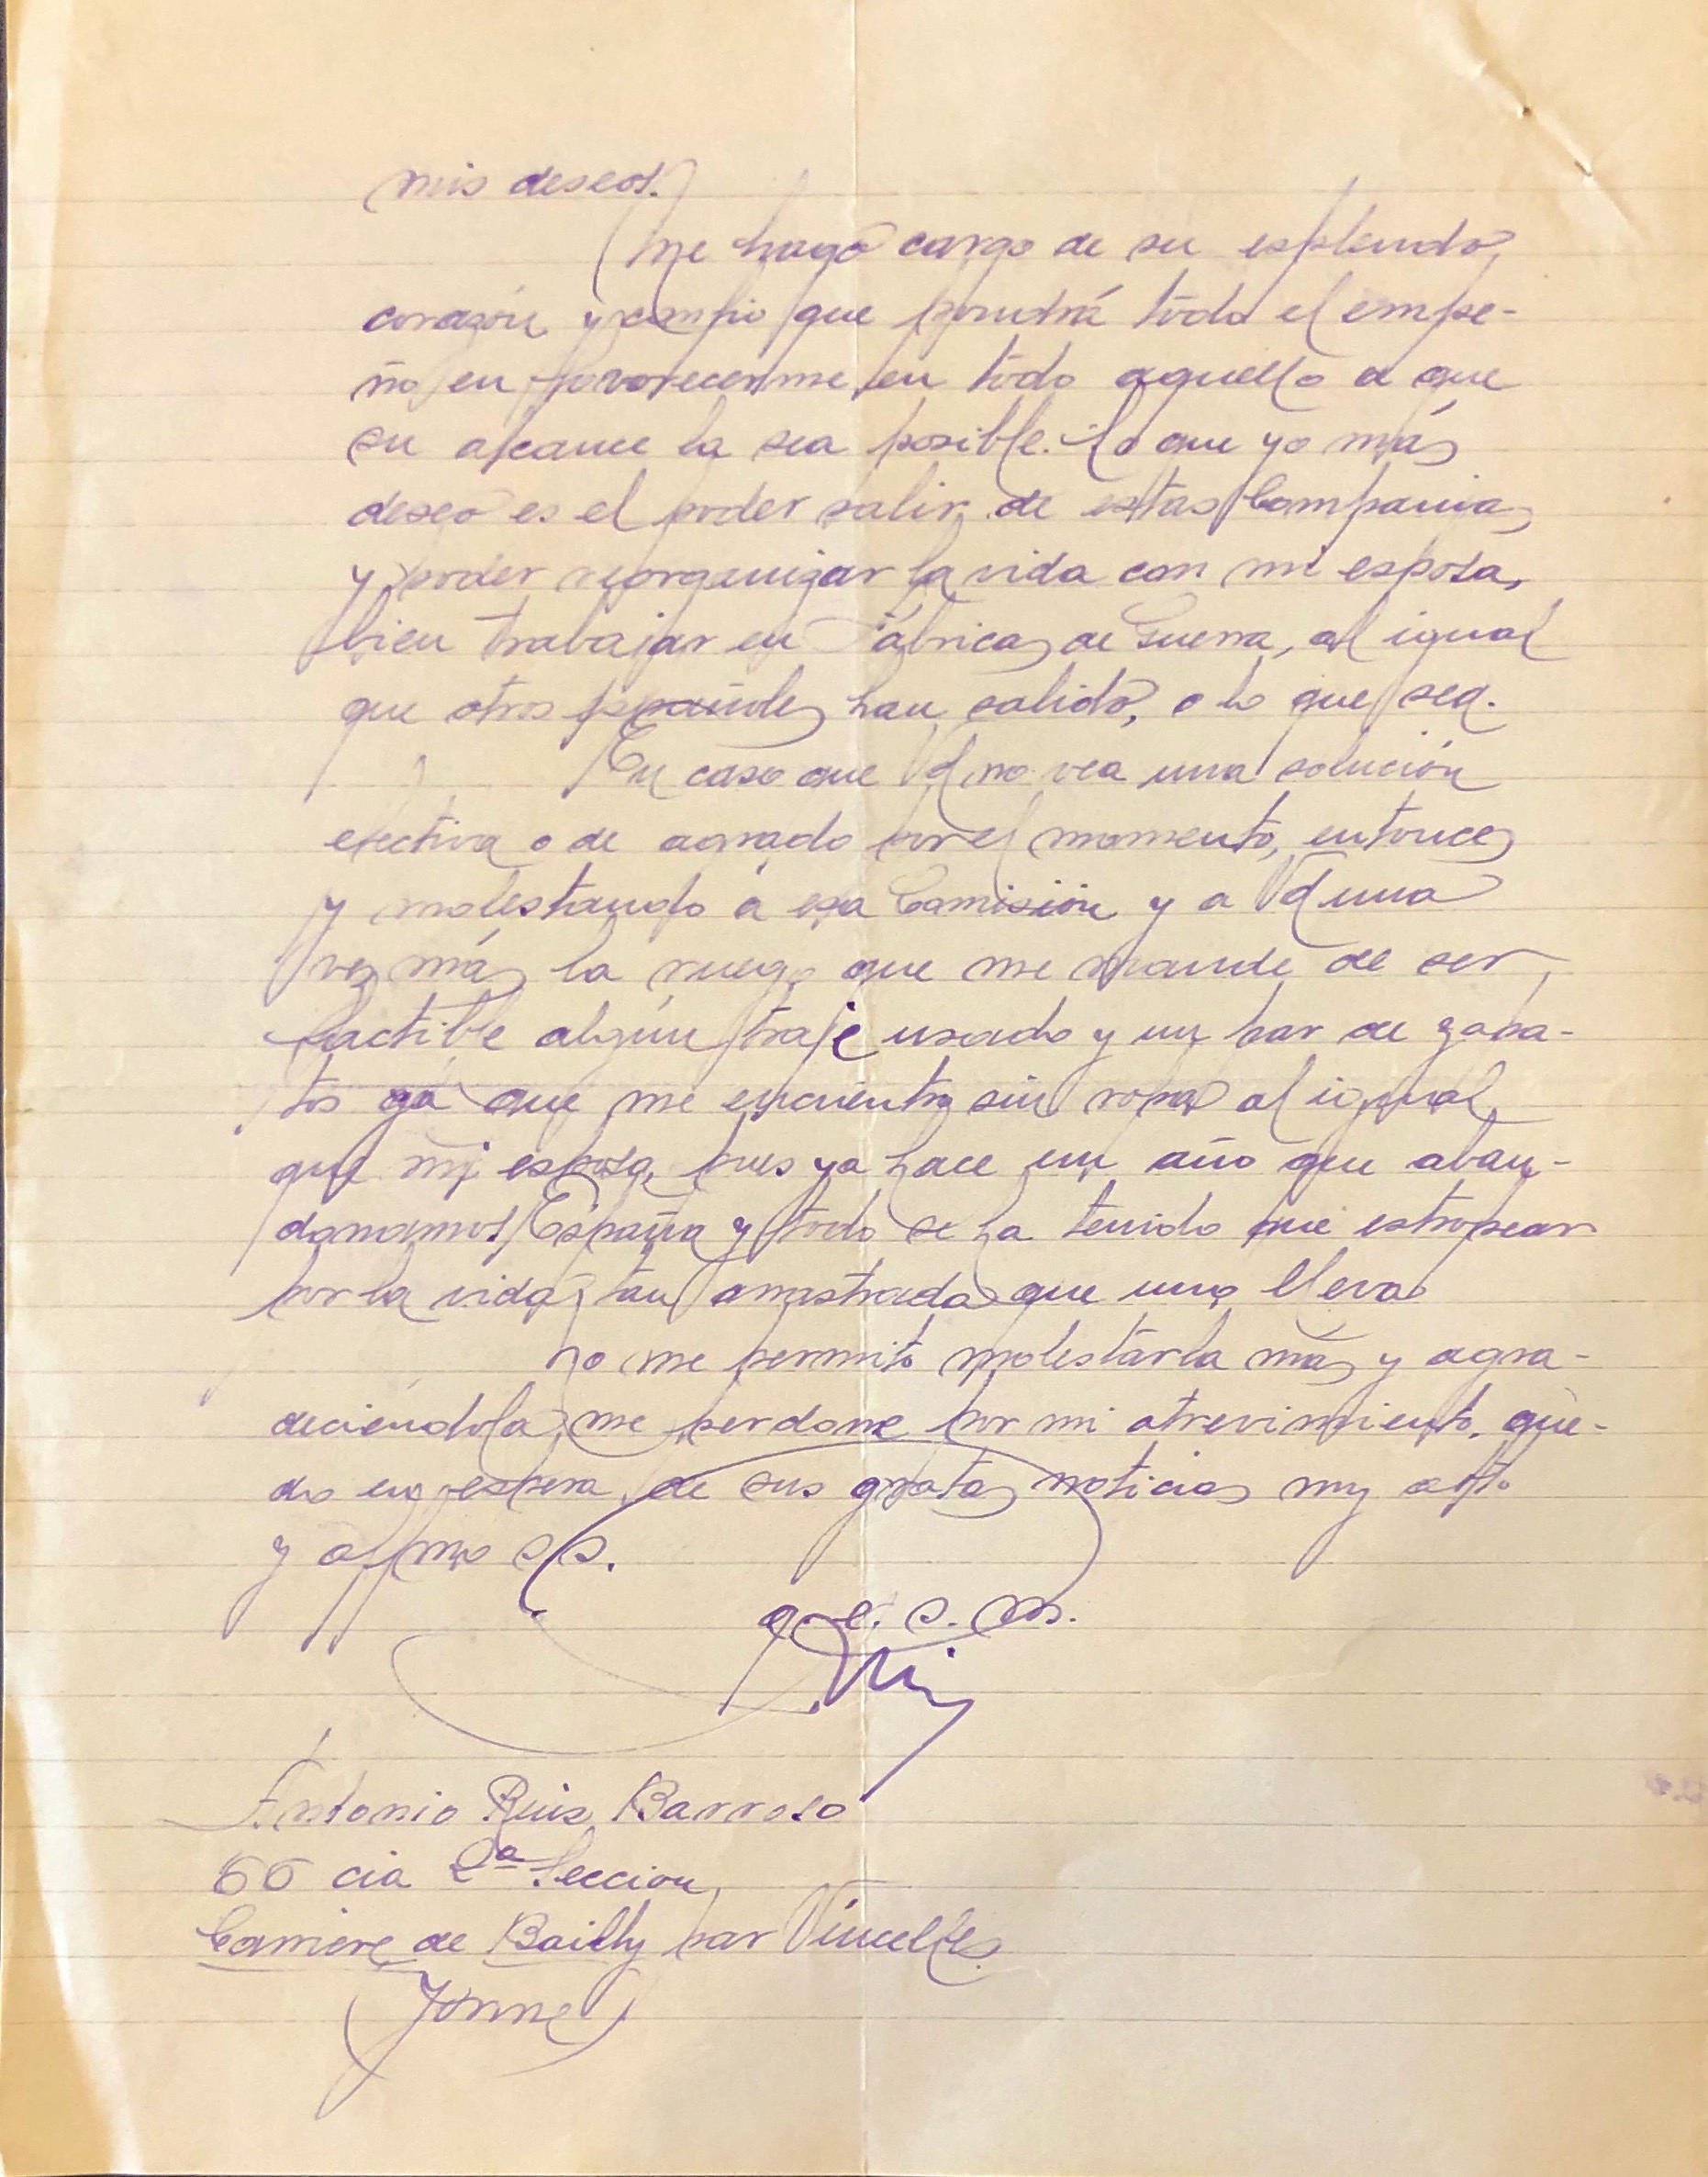 mis deseos.
Me hago cargo de su esplendo
corazón y confio que pondrá todo el empe-
ño en favorecerme en todo aquello a que
su alcance la sea posible. Lo que yo más
deseo es el poder salir de estas Compañias
y poder reorganizar la vida con mi esposa,
bien trabajar en Fábricas de Guerra, al igual
que otros españoles han salido, o lo que sea.
En caso que Vd no vea una solución
efectiva o de agrado por el momento, entonces
y molestando a esa Comisión y a Vd una
vez más la ruego que me mande de ser
factible algún traje usado y un par de zapa-
tos ya que me encuentro sin ropa al igual
que mi esposa, pues ya hace un año que aban-
donamos España y todo se ha tenido que estropear
por la vida tan arrastrada que uno lleva
No me permito molestarla más y agra-
deciéndola me perdone por mi atrevimiento, que-
do en espera de sus gratas noticias muy atto
y affmo s.s.
q. e. s. m.
Antonio Ruiz Barroso
66 cia 2ª Seccion
Carriere de Bailly par Vincelles
Yonne